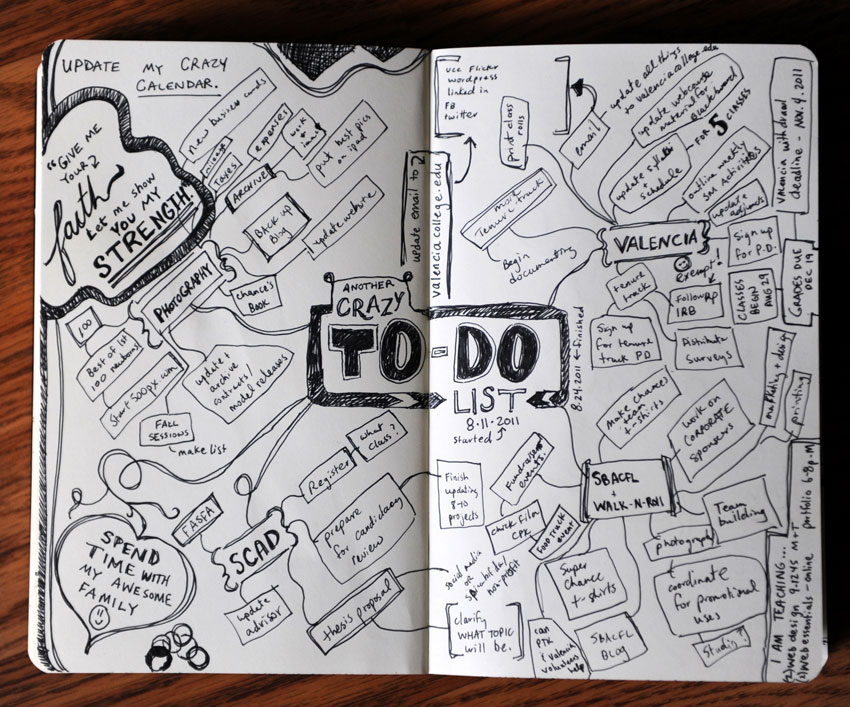 UPDATE MY CRAZY
CALENDAR.
"GIVE ME
YOUR
faith
Let me show
YOU MY
STRENGTH!"
new business cards
invoice
Taxes
expenses
work +
ARCHIVE
print best pics
on ipad
BACK UP
Blog
update website
PHOTOGRAPHY
chance's
BOOK
100
Best of list
100 neutrons
Start 500px
update +
archive
contracts/
model releases
FALL
SESSIONS
make list
ANOTHER
CRAZY
TO-DO
LIST
8.11.2011
started
8.24.2011 ← finished
FASFA
SCAD
update
advisor
Register
what
class?
prepare
for candidacy
review
thesis proposal
SPEND
TIME WITH
MY AWESOME
FAMILY
Finish
updating
8-10
projects
social media
or
non-profit
clarify
WHAT TOPIC
will be.
VCC Flicker
wordpress
linked in
FB
twitter
update email to
valenciacollege.edu
print class
rolls
email
update all things
to valenciacollege.edu
update webcourse
material for
Blackboard
FOR 5 CLASSES
update syllabi
schedule
outline weekly
SM ACTIVITIES
update adjuncts
VALENCIA
valencia withdrawal
deadline - NOV. 4, 2011
more
Tenure track
Begin
documenting
Sign up
for P.D.
exempt!
tenure
track
Follow up
IRB
CLASSES
BEGIN
AUG 29
GRADES DUE
DEC 19
Sign up
for tenure
track PD
Distribute
surveys
Make chances
team
t-shirts
work on
CORPORATE
SPONSORS
marketing + design
printing
Fundraiser
events.
SBACFL
+
WALK-N-ROLL
chick fil a
CPK
FOOD TRUCK
EVENT
Team
building
photograph
Super
Chance
t-shirts
coordinate
for promotional
uses
Studio?
SBACFL
BLOG
can
PTK
& valencia
volunteers
help
I AM TEACHING...
(2) web design 9-1245 M+T
(2) Web essentials - online
portfolio 6-8p.M